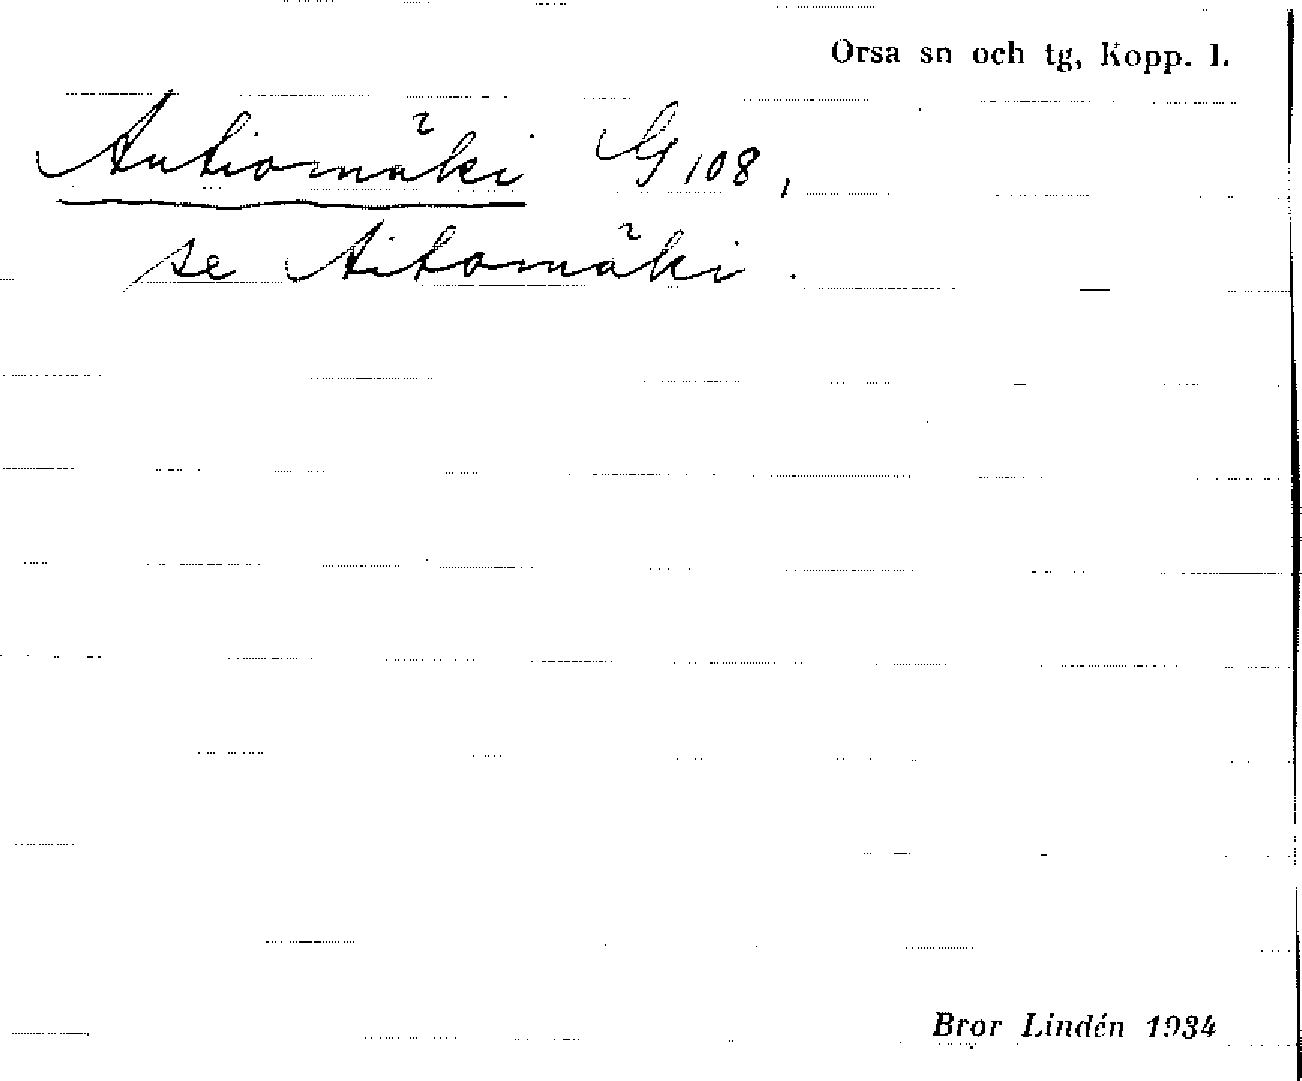 Orsa sn och tg, Kopp. l.
Autiomäki G 108,
se Aitomäki.
Bror Lindén 1934